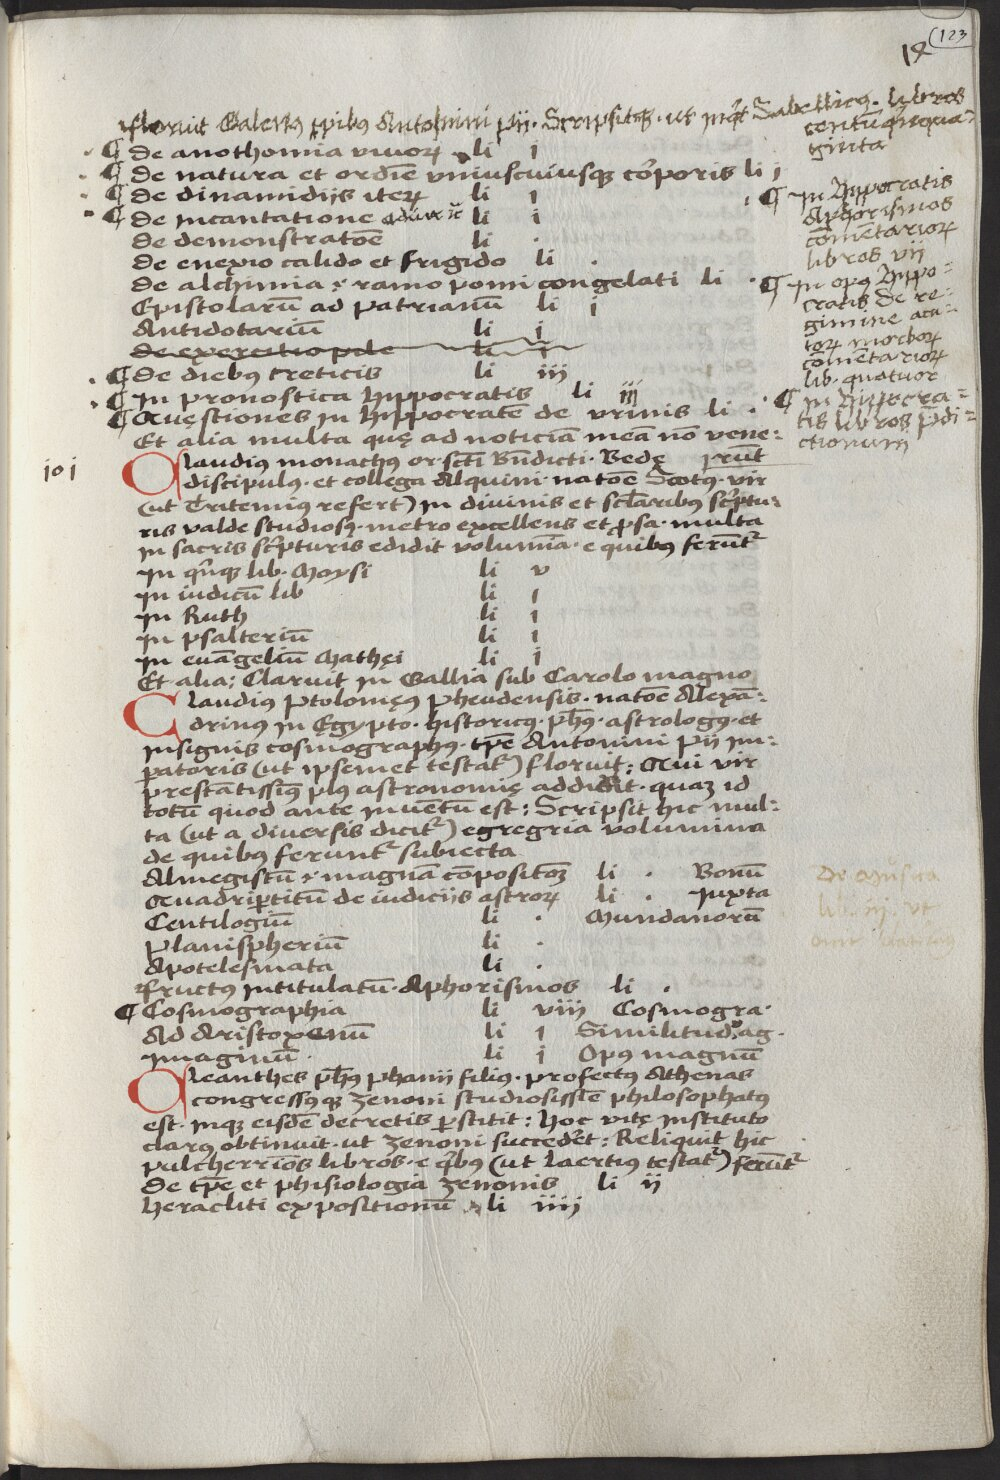 123
19
Floruit Galenus tpibus Antonini pii. Scripsitqꝫ. ut inqt Sabellicus. libros
centū quinqua=
ginta
¶ De anothomia vivoꝝ li i
¶ De natura et ordiē uniuscuiusqꝫ cōporis li i
¶ De dinamidiis iteꝝ li i
¶ De incantatione li i
De demonstratōe li .
De enexio calido et frigido li .
De alchimia ⁊ ramo pomi congelati li .
Epistolarū ad patrianū li i
Antidotariū li i
De exercitio pile li i
¶ De diebus creticis li iii
¶ In pronostica hyppocratis li iii
¶ Quęstiones in hyppocratē de urinis li .
Et alia multa quę ad noticiā meā nō vene=
rūt
¶ In Hyppocratis
Aphorismos
cōmētarioꝝ
libros vii
¶ In opus Hyppo=
cratis de re=
gimine acu=
toꝝ morboꝝ
cōmētarioꝝ
lib. quatuor
¶ In Hippocra=
tis libros p̄di=
ctionum
101
Claudius monachus or. scti Bn̄dicti. Bedę
discipulus. et collega Alquini. natōe Scotus. vir
(ut Tritemius refert) in divinis et sclaribus scptu=
ris valde studiosus. metro excellens et ꝓsa. multa
in sacris scpturis edidit volumīa. e quibus ferunt᷑
In qnqꝫ lib. Moysi li v
In iudicū lib li i
In Ruth li i
In psalteriū li i
In euāgeliū Mathęi li i
Et alia: Claruit in Gallia sub Carolo magno
Claudius Ptolomęus Pheudensis. natōe Alexā=
drinus in Egypto. historicus. phus. astrologus. et
insignis cosmographus. tpe Antonini pii im=
patoris (ut ipsemet testat᷑) floruit: Qui vir
prestātissimus plus astronomię addidit. quaꝫ id
totū quod ante inuētū est: Scripsit hic mul=
ta (ut a diversis dicit᷑) egregria volumina
de quibus ferunt᷑ subiecta
Almegistū ⁊ magnā cōpositōꝫ li . Bonū
Quadripartitū de iudiciis astroꝝ li . Iuxta
Centilogiū li . Mundanorū
Planispheriū li .
Apotelesmata li .
De Musica
li iii ut
Fructus intitulatū. Aphorismos li .
¶ Cosmographia li viii Cosmogra.
Ad Aristoxenū li i Similitud. ag.
Imaginū. li i Opus magnū
Cleanthes phus Phanii filius. profectus Athenas
congressusqꝫ Zenoni studiosissīe philosophatus
est. inqꝫ eisdē decretis ꝑstitit: Hoc vitę instituto
clarus obtinuit. ut Zenoni succedet: Reliquit hic
pulcherrīos libros. e qbus (ut Laertius testat᷑) ferūt᷑
De tpe et phisiologia Zenonis li ii
Heracliti expositionū li iiii